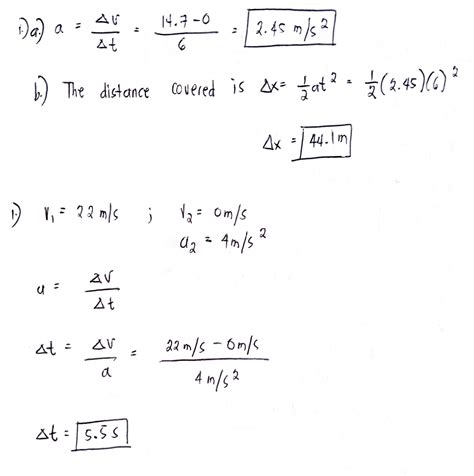 1.) a.) a = Δv/Δt = 14.7-0/6 = 2.45 m/s²
b.) The distance covered is Δx = 1/2 at² = 1/2 (2.45)(6)²
Δx = 44.1m
1.) V₁ = 22 m/s ; V₂ = 0m/s
a₂ = 4m/s²
a = Δv/Δt
Δt = Δv/a = 22m/s - 0m/s/4 m/s²
Δt = 5.5 s